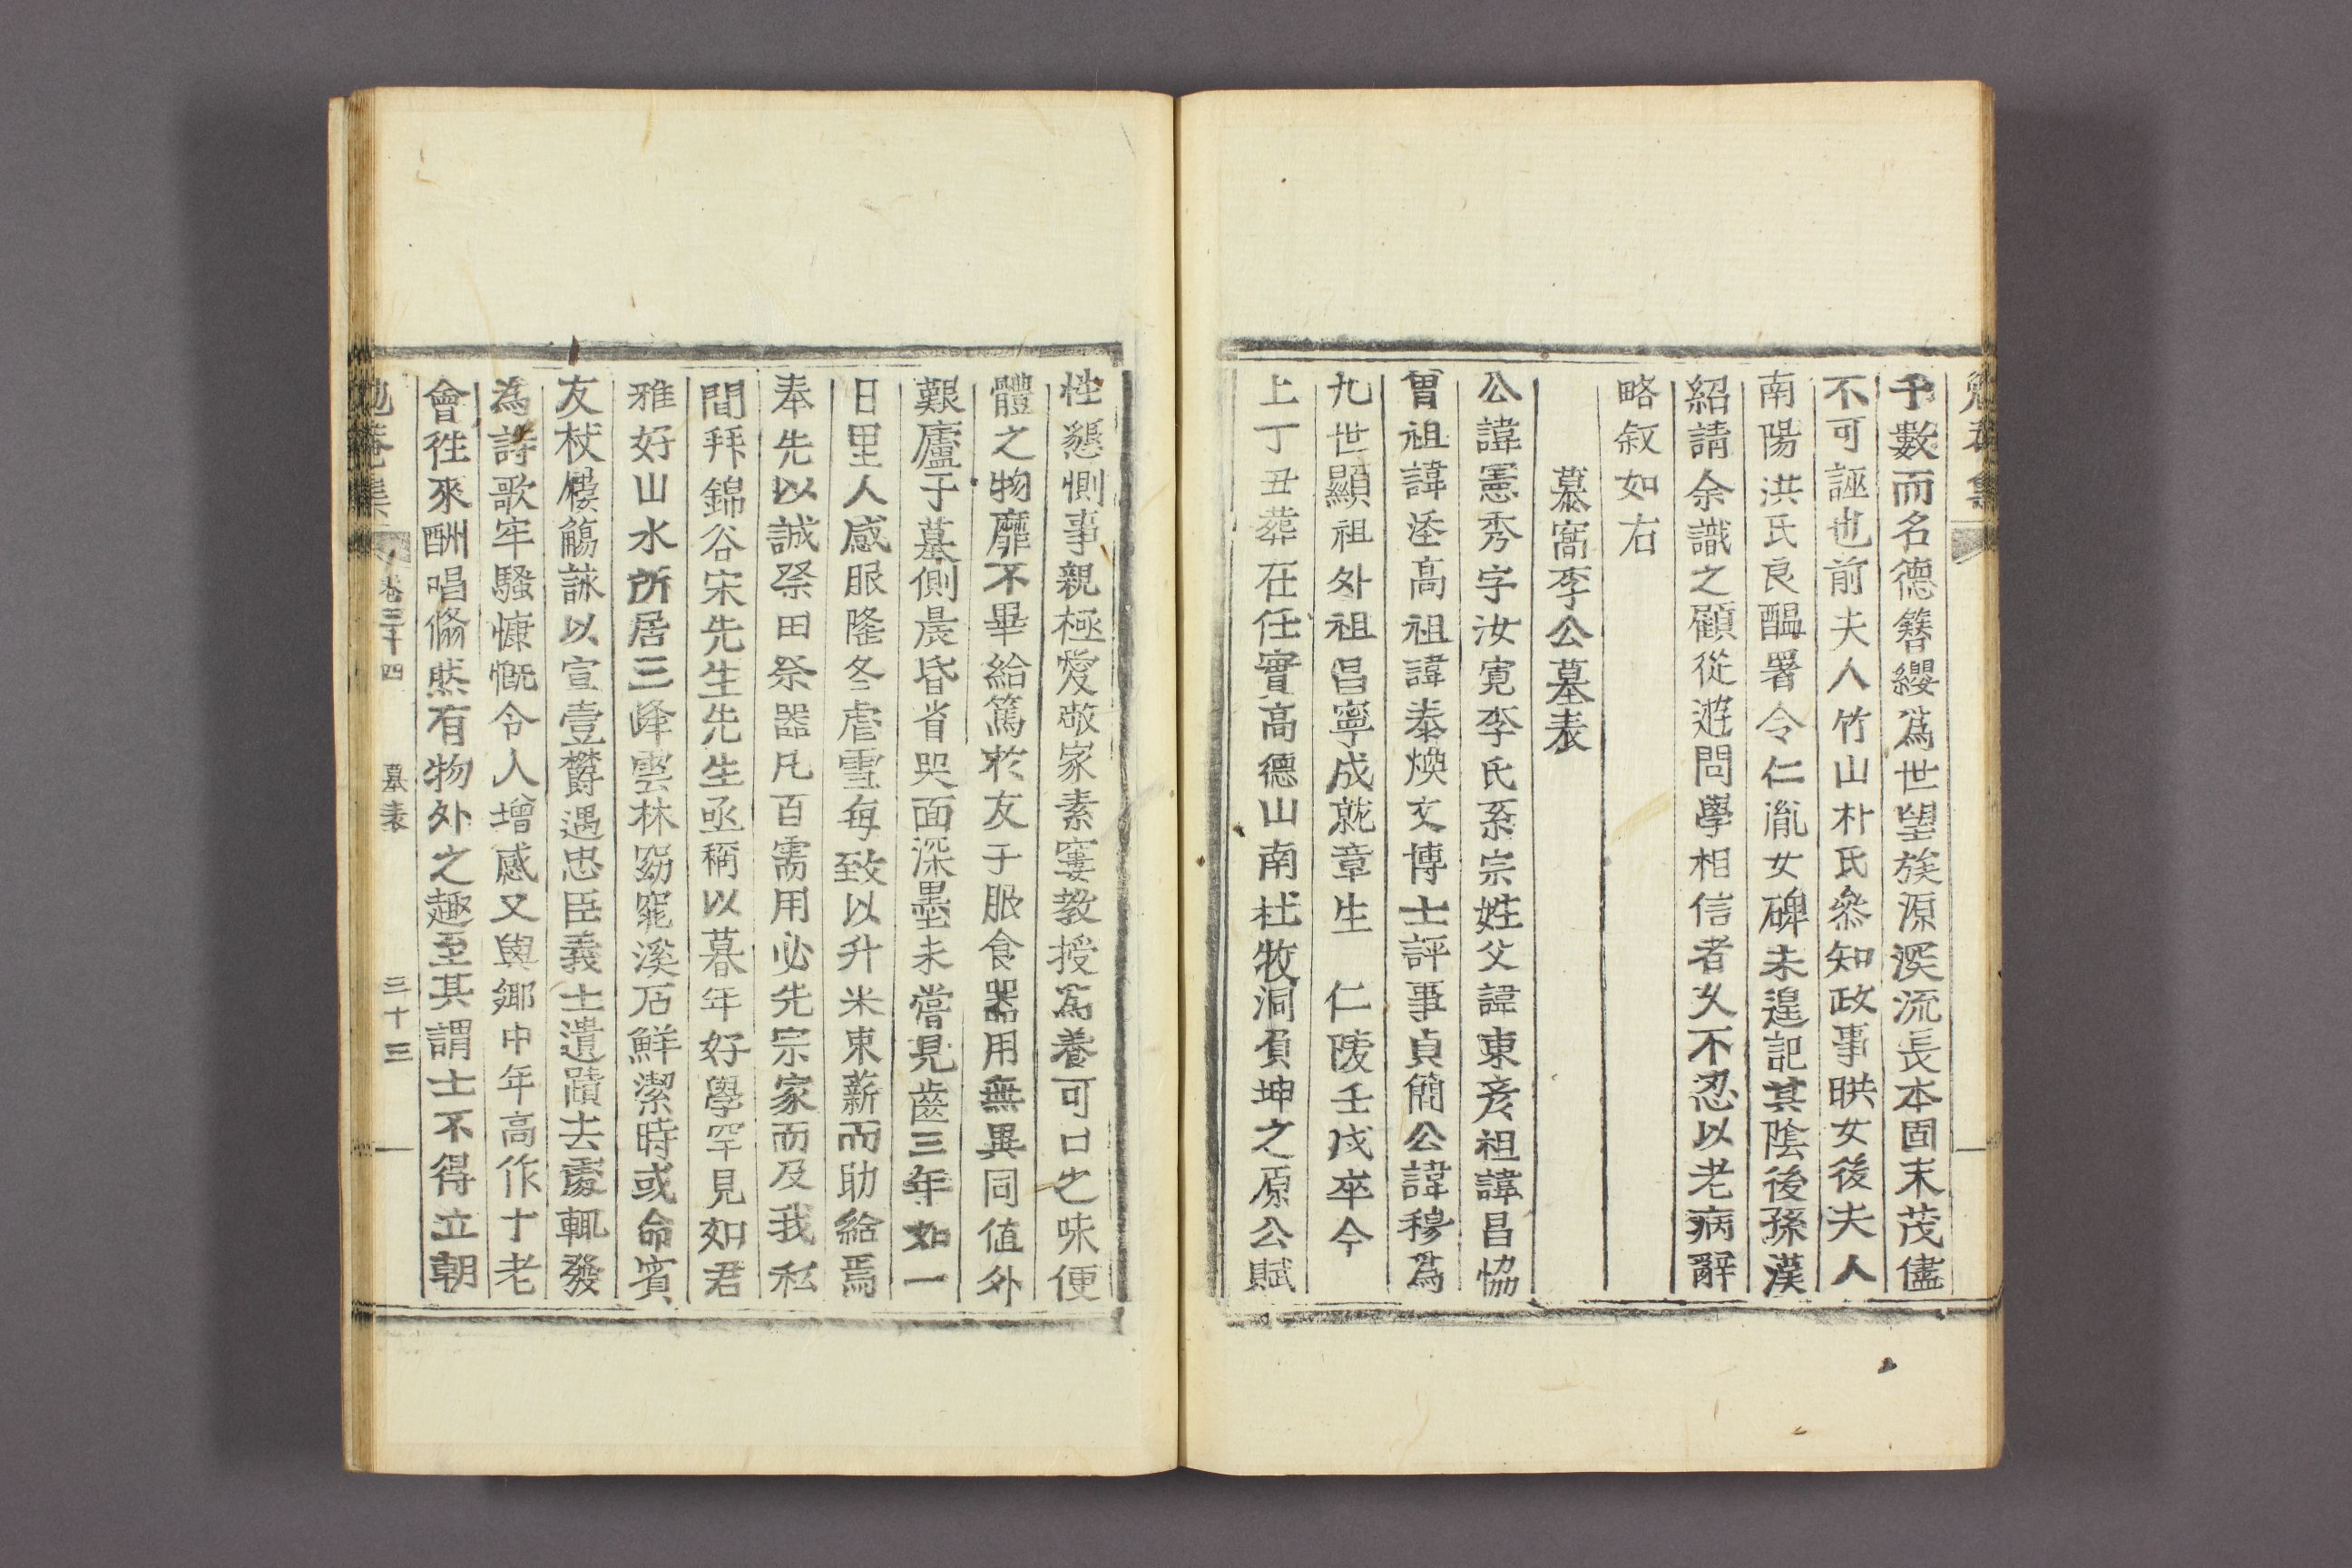 予數而名德簪纓爲世望族源深流長本固末茂儘
不可誣也前夫人竹山朴氏參知政事晎女後夫人
南陽洪氏良醞署令仁胤女碑未遑記其陰後孫漢
紹請余識之顧從遊問學相信者久不忍以老病辭
略叙如右
慕窩李公墓表
公諱憲秀字汝寬李氏系宗姓父諱東彦祖諱昌協
曾祖諱垤高祖諱泰煥文博士評事貞簡公諱穆爲
九世顯祖外祖昌寧成就章生 仁陵壬戌卒今
上丁丑葬在任實高德山南杜牧洞負坤之原公賦
性懇惻事親極愛敬家素窶教授爲養可口之味便
體之物靡不畢給篤於友于服食器用無異同値外
艱廬于墓側晨昏省哭面深墨未嘗見齒三年如一
日里人感服隆冬虐雪每致以升米束薪而助給焉
奉先以誠祭田祭器凡百需用必先宗家而及我私
間拜錦谷宋先生先生亟稱以暮年好學罕見如君
雅好山水所居三峰雲林窈窕溪石鮮潔時或命賓
友杖屨觴詠以宣壹鬱遇忠臣義士遺蹟去處輒發
為詩歌牢騷慷慨令人增感又與鄉中年高作十老
會徃來酬唱翛然有物外之趣至其謂士不得立朝
卷三十四 墓表 三十三